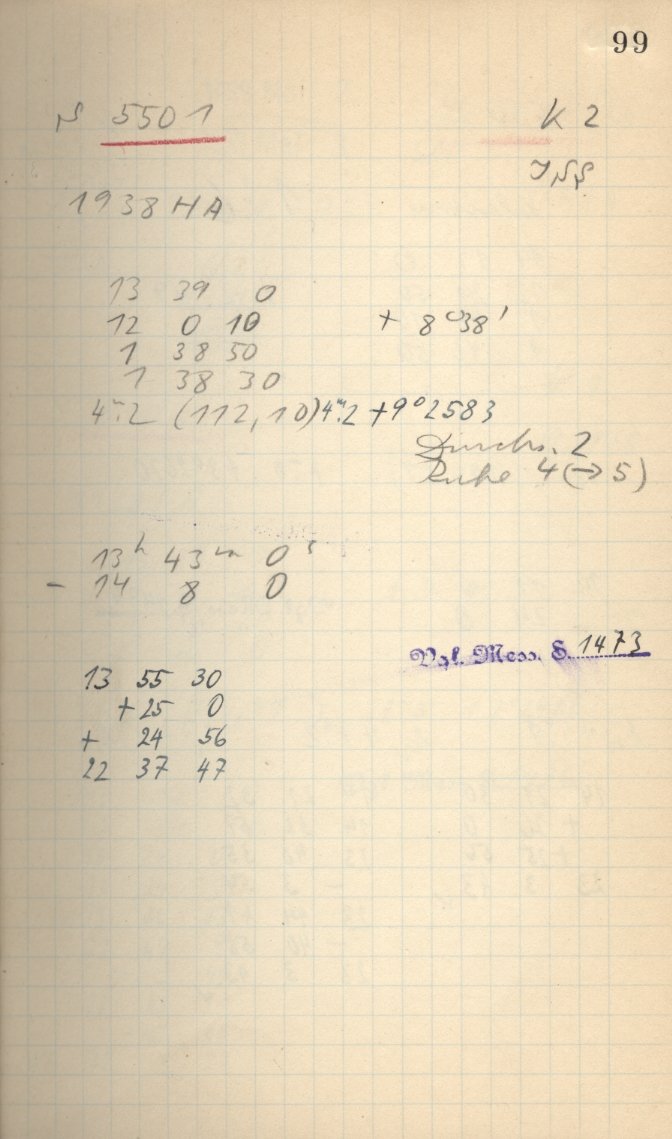 99
N 5501 K 2
1938 HA
13 39 0
12 0 10 + 8° 38'
1 38 50
1 38 30
4m.2 (112,10) 4m.2 +9° 2583
Durchs. 2
Ruhe 4 (→ 5)
13h 43m 0s
- 14 8 0
Vgl. Mess. S. 1473
13 55 30
+ 25 0
+ 24 56
22 37 47